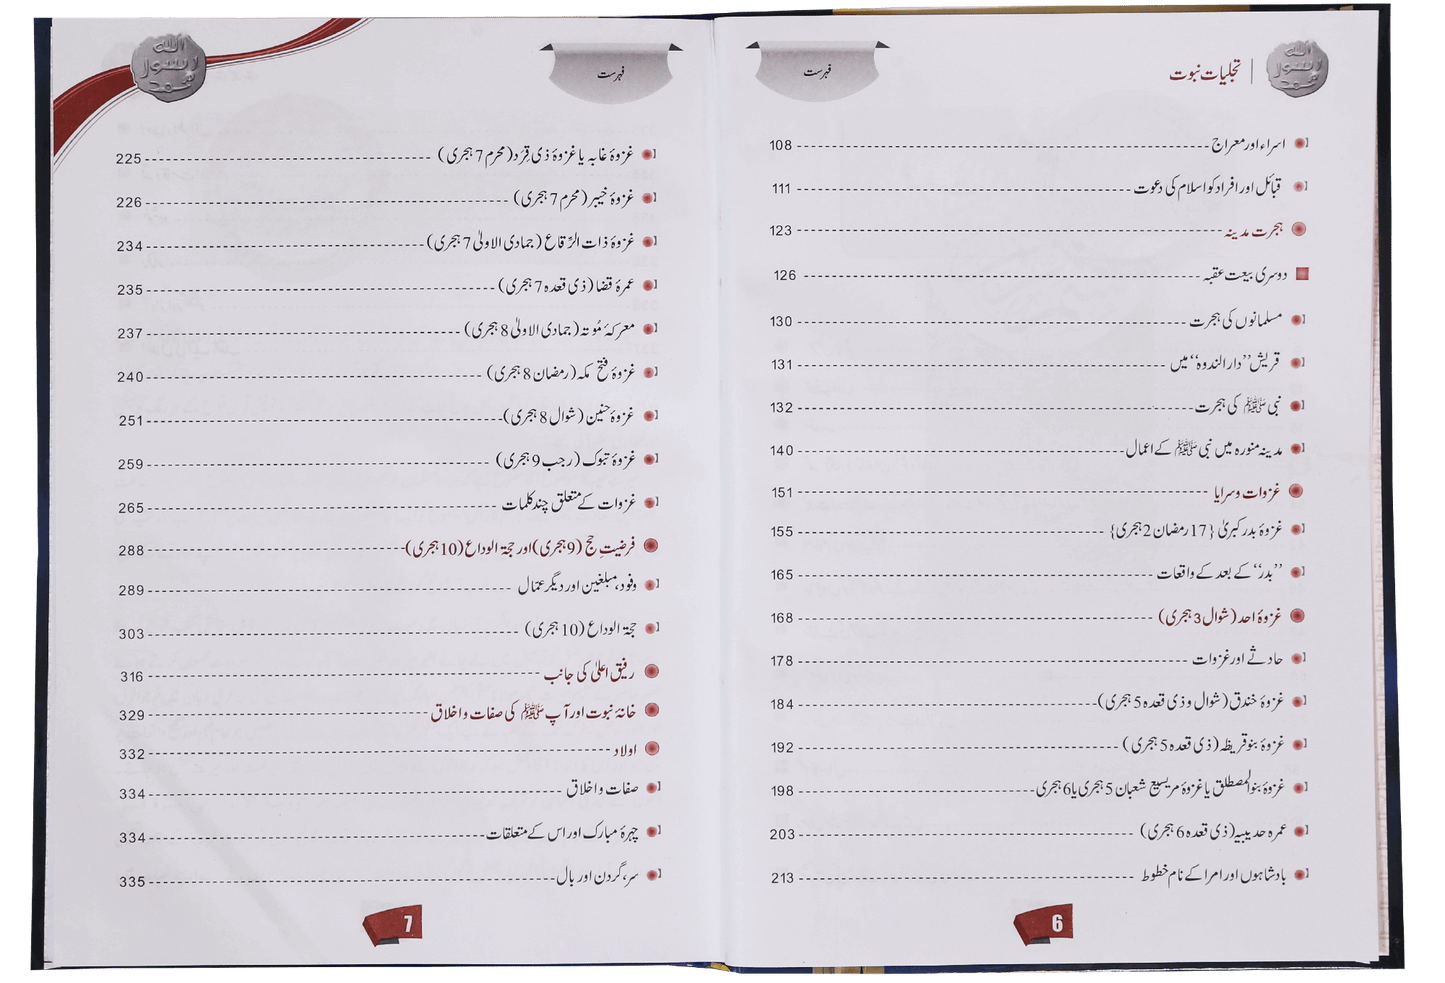 الله
رسول
محمد
تجلیات نبوت
فہرست
اسراء اور معراج 108
قبائل اور افراد کو اسلام کی دعوت 111
ہجرت مدینہ 123
دوسری بیعت عقبہ 126
مسلمانوں کی ہجرت 130
قریش ’’دار الندوہ‘‘ میں 131
نبی ﷺ کی ہجرت 132
مدینہ منورہ میں نبی ﷺ کے اعمال 140
غزوات و سرایا 151
غزوۂ بدر کبریٰ {17 رمضان 2 ہجری} 155
’’بدر‘‘ کے بعد کے واقعات 165
غزوۂ احد (شوال 3 ہجری) 168
حادثے اور غزوات 178
غزوۂ خندق (شوال و ذی قعدہ 5 ہجری) 184
غزوۂ بنو قریظہ (ذی قعدہ 5 ہجری) 192
غزوۂ بنو المصطلق یا غزوۂ مریسیع شعبان 5 ہجری یا 6 ہجری 198
عمرہ حدیبیہ (ذی قعدہ 6 ہجری) 203
بادشاہوں اور امرا کے نام خطوط 213
6
الله
رسول
محمد
فہرست
غزوۂ غابہ یا غزوۂ ذی قِرَد (محرم 7 ہجری) 225
غزوۂ خیبر (محرم 7 ہجری) 226
غزوۂ ذات الرّقاع (جمادی الاولیٰ 7 ہجری) 234
عمرۂ قضا (ذی قعدہ 7 ہجری) 235
معرکۂ مُوتہ (جمادی الاولیٰ 8 ہجری) 237
غزوۂ فتح مکہ (رمضان 8 ہجری) 240
غزوۂ حنین (شوال 8 ہجری) 251
غزوۂ تبوک (رجب 9 ہجری) 259
غزوات کے متعلق چند کلمات 265
فرضیتِ حج (9 ہجری) اور حجۃ الوداع (10 ہجری) 288
وفود، مبلغین اور دیگر عمّال 289
حجۃ الوداع (10 ہجری) 303
رفیق اعلیٰ کی جانب 316
خانۂ نبوت اور آپ ﷺ کی صفات و اخلاق 329
اولاد 332
صفات و اخلاق 334
چہرۂ مبارک اور اس کے متعلقات 334
سر، گردن اور بال 335
7